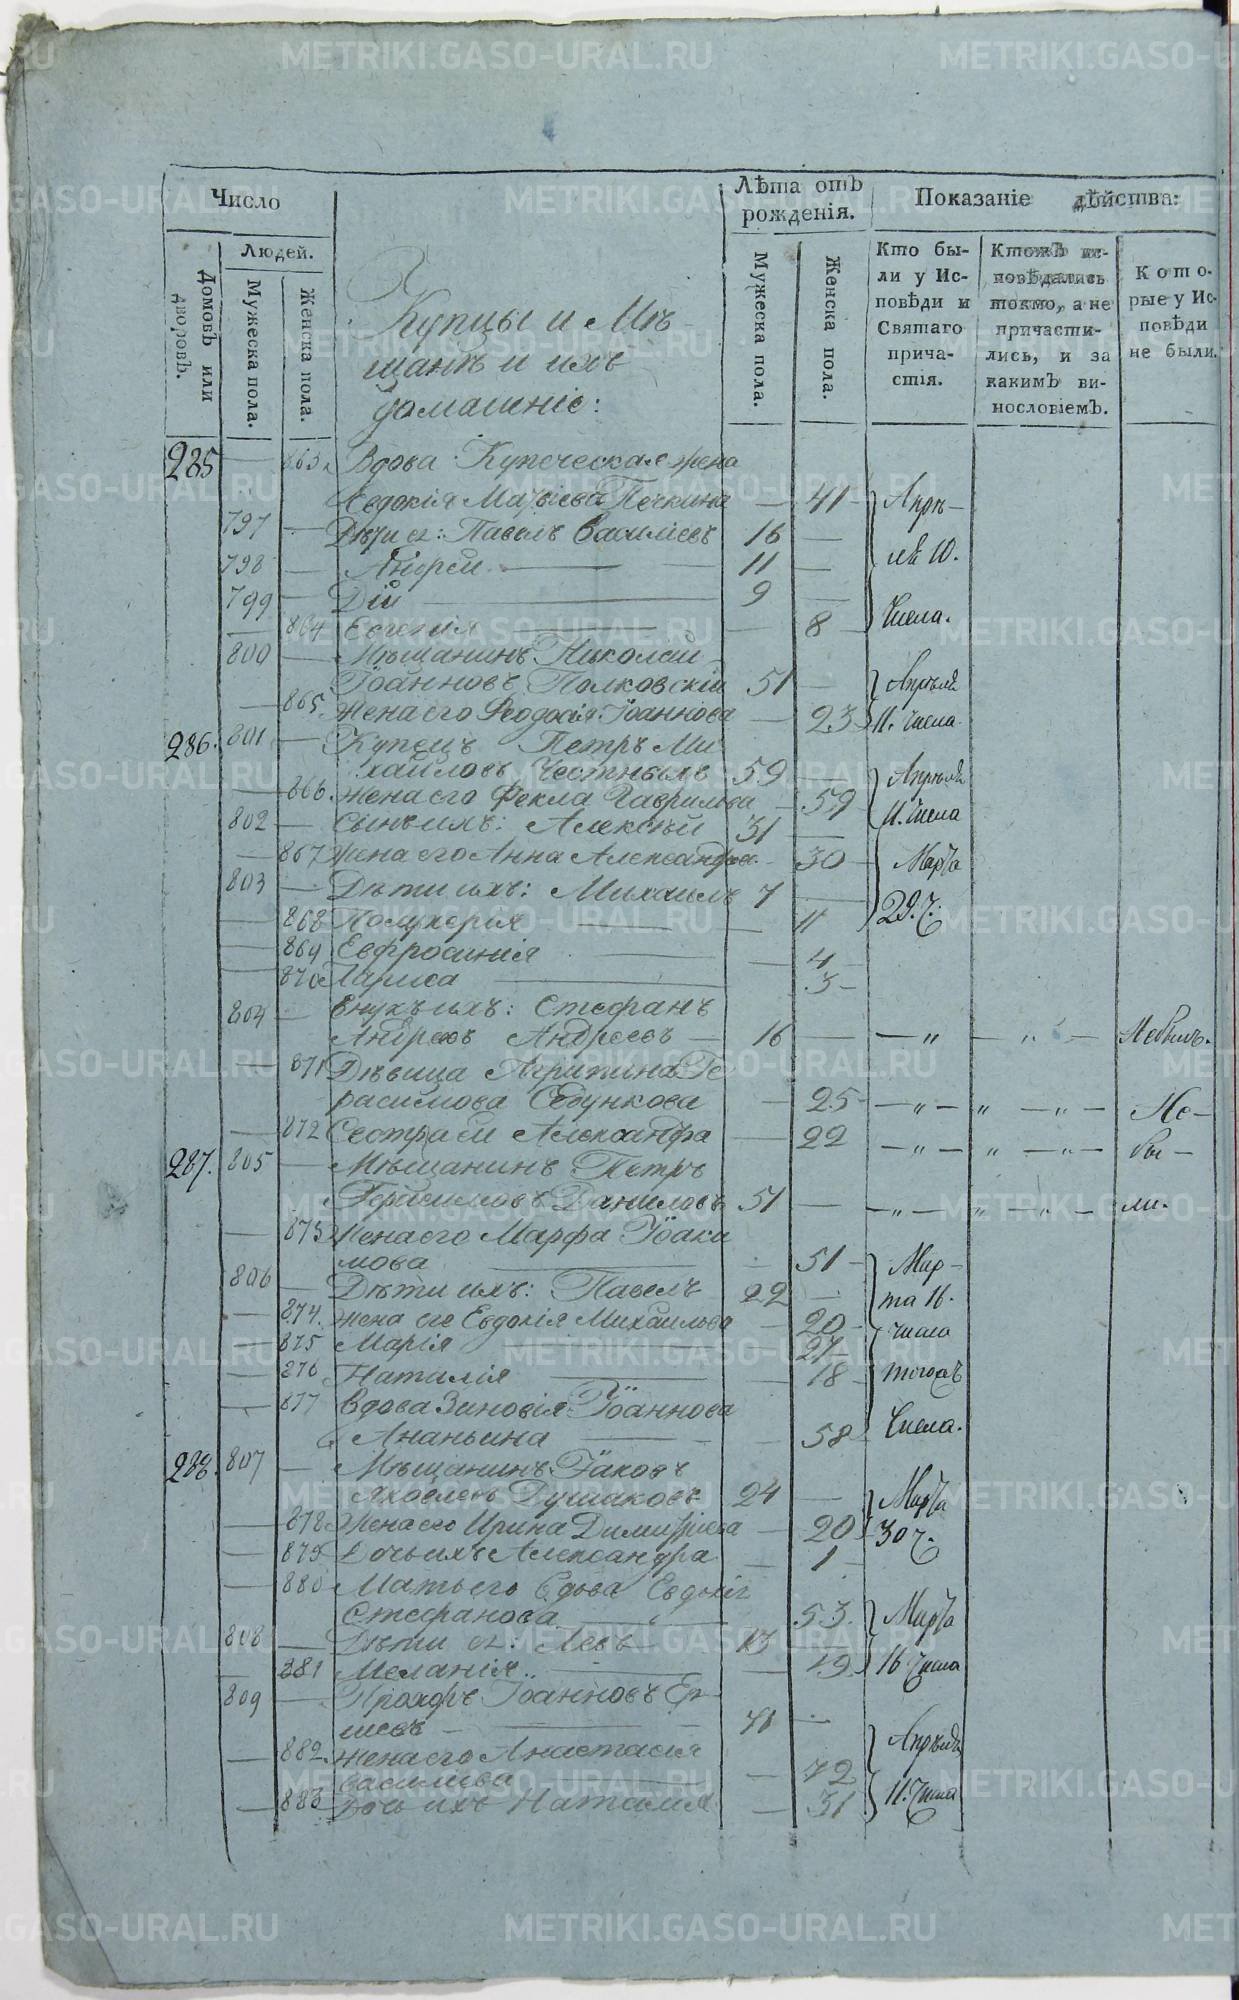 Число
Лѣта отъ рожденія.
Показаніе дѣйства:
Домовъ или дворовъ.
Людей.
Мужеска пола.
Женска пола.
Мужеска пола.
Женска пола.
Кто бы-
ли у Ис-
повѣди и
Святаго
прича-
стія.
Ктожъ ис-
повѣдались
токмо, а не
причасти-
лись, и за
какимЪ ви-
нословіемЪ.
Кото-
рые у Ис-
повѣди
не были.
Купцы и Мѣ-
щанѣ и ихъ
домашніе:
285 — 863 Вдова Купеческая жена
Евдокія Матѳіева Печкина — 41 Апрѣ-
797 — Дѣти ея: Павелъ Василіевъ 16 —
798 — Андрей — 11 — ля 10.
799 — Дій — 9 —
— 864 Евгенія — 8 Числа.
800 — Мѣщанинъ Николай
Іоанновъ Полковскій 51 — Апрѣля
— 865. Жена его Ѳеодосія Іоаннова — 23 11. числа
286. 801 — Купецъ Петръ Ми-
хайловъ Честныхъ 59 — Апрѣля
— 866. Жена его Фекла Гаврилова — 59 11. Числа
802 — Сынъ ихъ: Алексѣй 31 —
— 867 Жена его Анна Александрова — 30 Марта
803 — Дѣти ихъ: Михаилъ 7 —
— 868 Полухерія — 11 29. ч.
— 869 Евфросинія — 4
— 870 Лариса — 3
804 — Внукъ ихъ: Стефанъ
Андреевъ 16 — — „ — „ — Небылъ.
— 871 Дѣвица Агрипина Ге-
расимова — 25 — „ — „ — „ — Не-
— 872 Сестра ей Александра — 22 — „ — „ — „ — бы-
287. 805 — Мѣщанинъ Петръ
Герасимовъ Даниловъ 51 — — „ — „ — „ — ли.
— 873 Жена его Марфа Іоаки-
мова — 51 Мар-
806 — Дѣти ихъ: Павелъ 22 — та 16.
— 874. Жена его Евдокія Михайлова — 20 числа
— 875 Марія — 27
— 876 Наталія — 18 тогожъ
— 877 Вдова Зиновія Іоаннова
Ананьина — 58 Числа.
288. 807 — Мѣщанинъ Іаковъ
Яковлевъ 24 — Марта
— 878 Жена его Ирина Димитріева — 20 30 ч.
— 879 Дочь ихъ Александра — 1
— 880 Мать его вдова Евдокія
Стефанова — 53. Марта
808 — Дѣти ея: Левъ 13 —
— 881 Меланія — 19 16 Числа
809 — Прохоръ Іоанновъ Ер-
71 —
— 882. Жена его Анастасія Апрѣля
Василіева — 72
— 883 Дочь ихъ Наталія — 31 11. Числа
METRIKI.GASO-URAL.RU